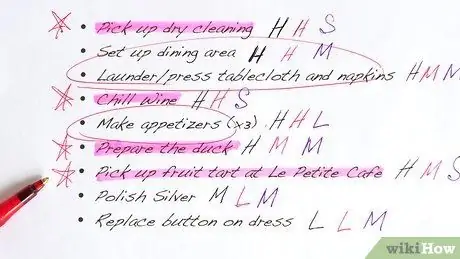 • Pick up dry cleaning H H S
• Set up dining area H H M
• Launder/press tablecloth and napkins H M M
• Chill Wine H H S
• Make appetizers (x3) H H L
• Prepare the duck H M M
• Pick up fruit tart at Le Petite Cafe H M S
• Polish Silver M L M
• Replace button on dress L L M
wikiHow